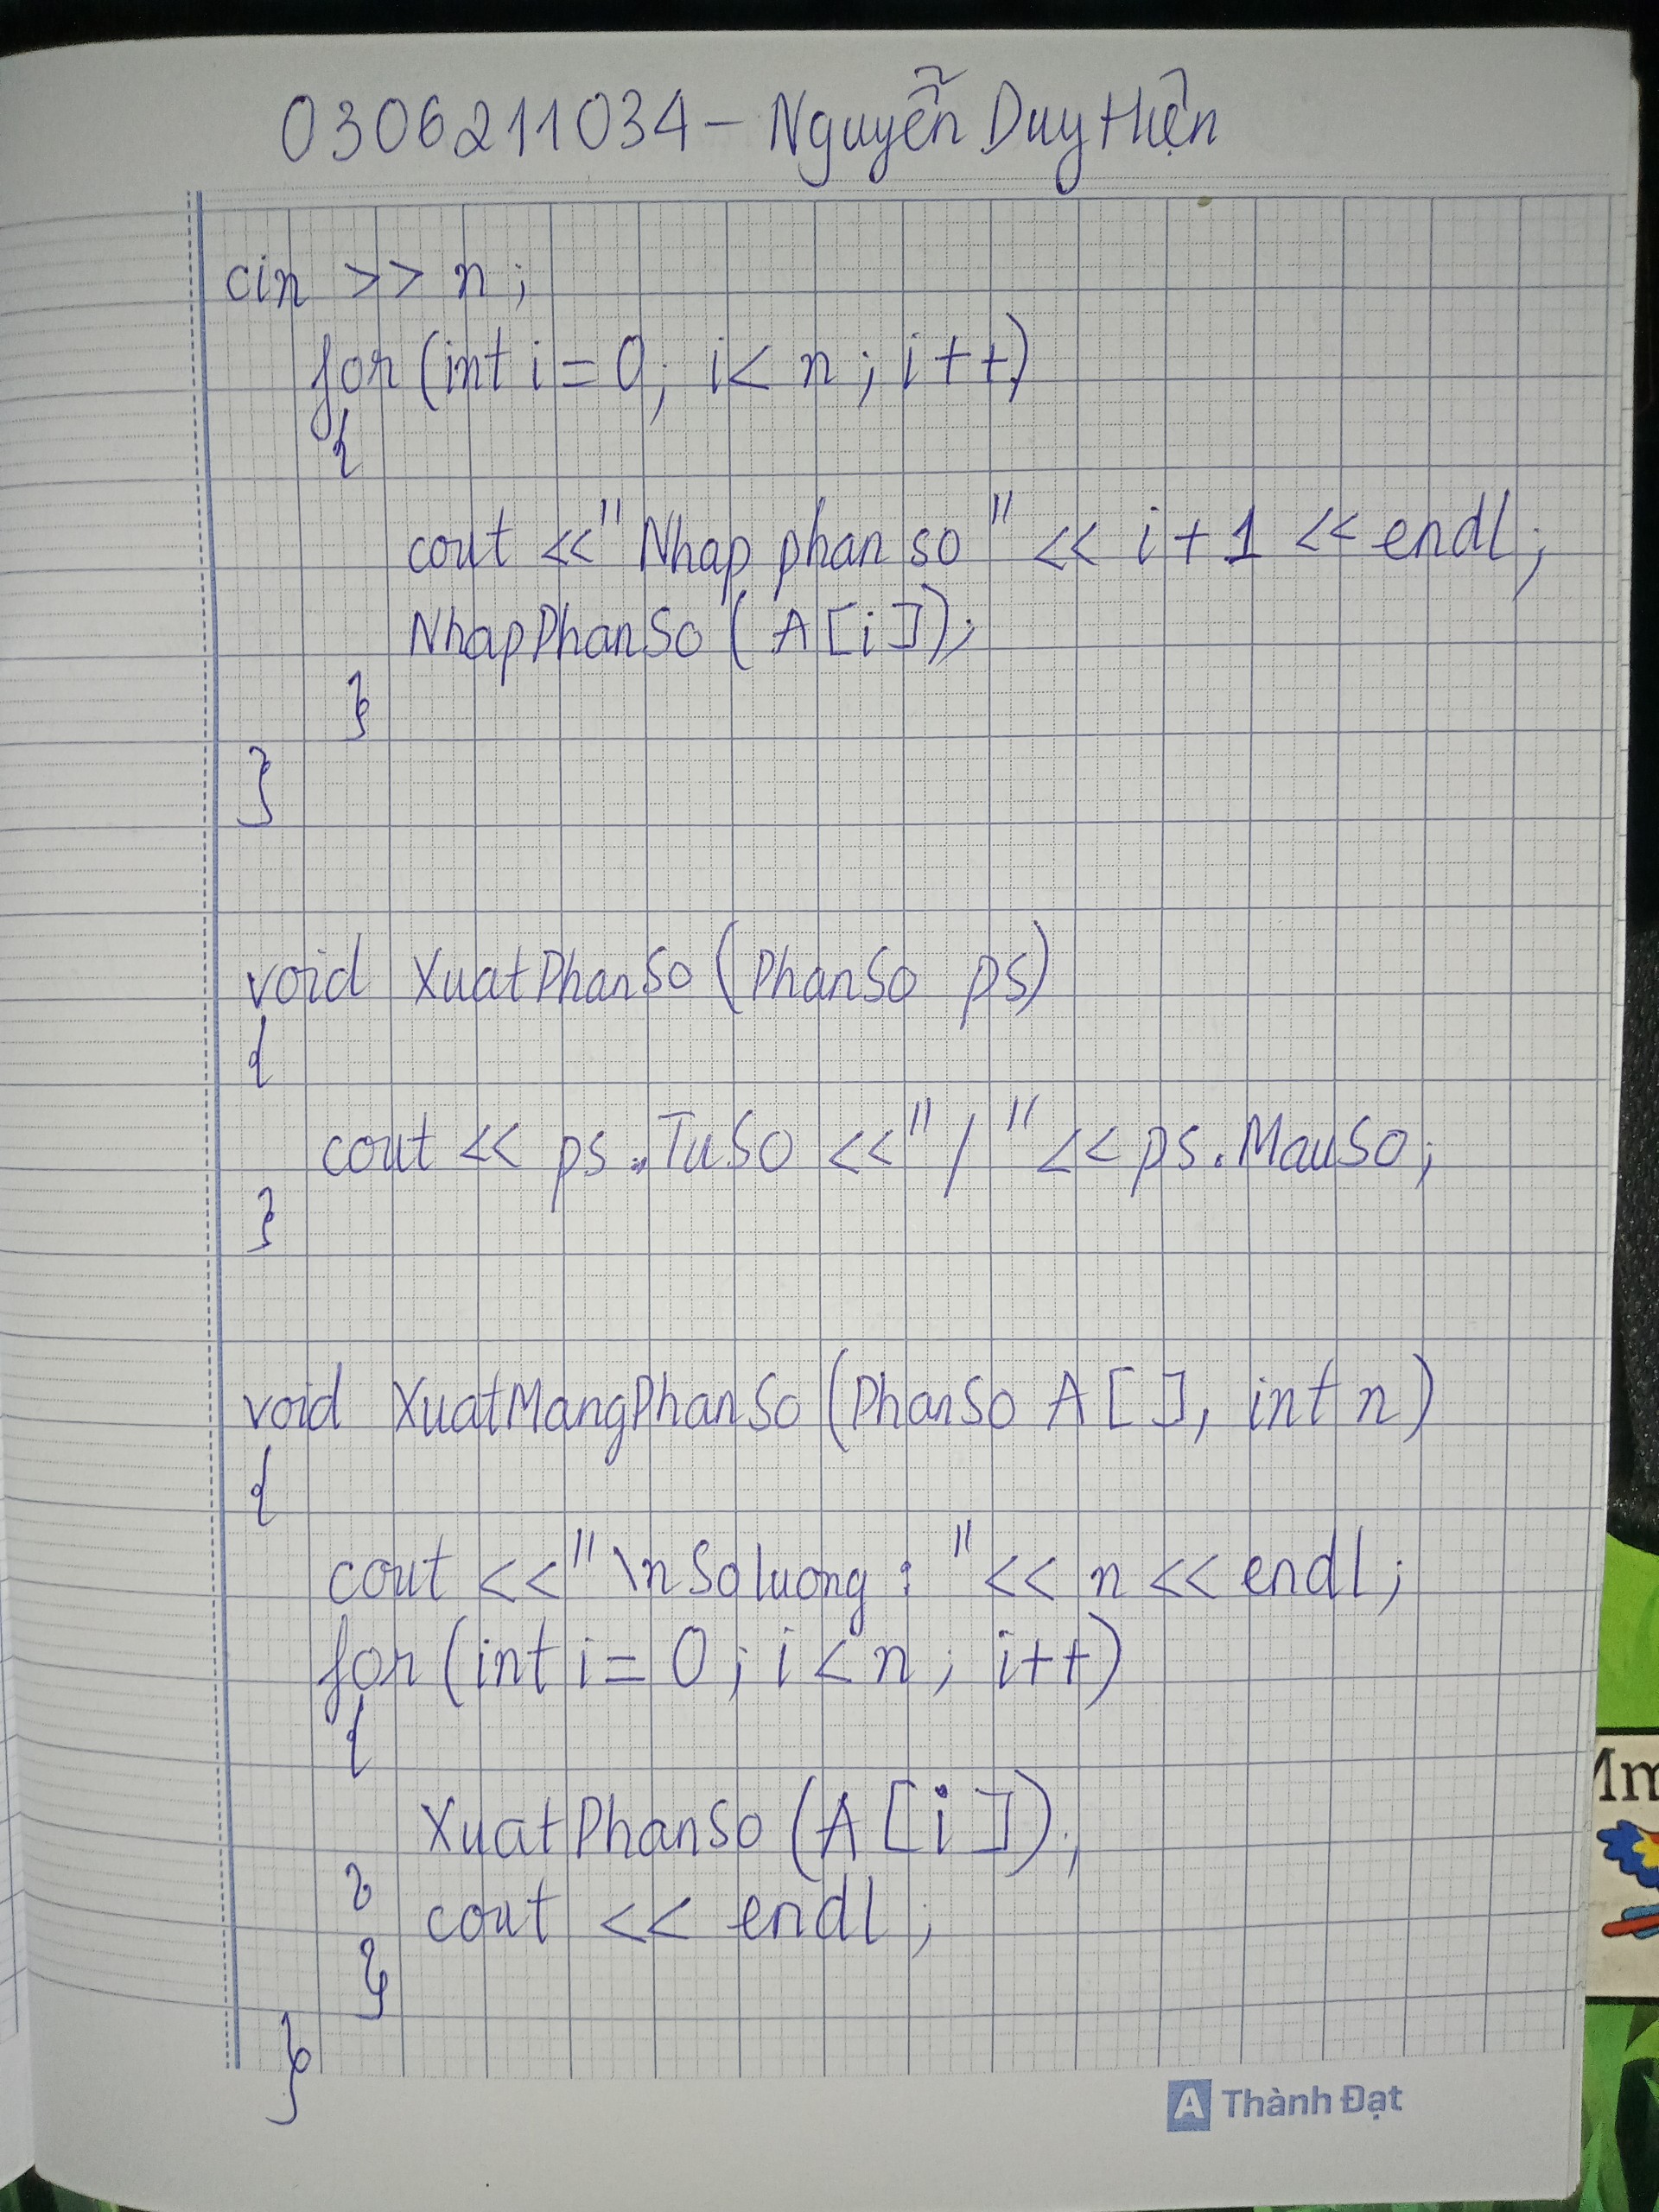 0306211034 - Nguyễn Duy Hiện
cin >> n;
for (int i = 0; i < n; i++)
{
cout << "Nhap phan so" << i + 1 << endl;
NhapPhanSo (A[i]);
}
}
void XuatPhanSo (PhanSo ps)
{
cout << ps.TuSo << "/" << ps.MauSo;
}
void XuatMangPhanSo (PhanSo A[], int n)
{
cout << "\nSo luong : " << n << endl;
for (int i = 0; i < n; i++)
{
XuatPhanSo (A[i]);
cout << endl;
}
}
A Thành Đạt